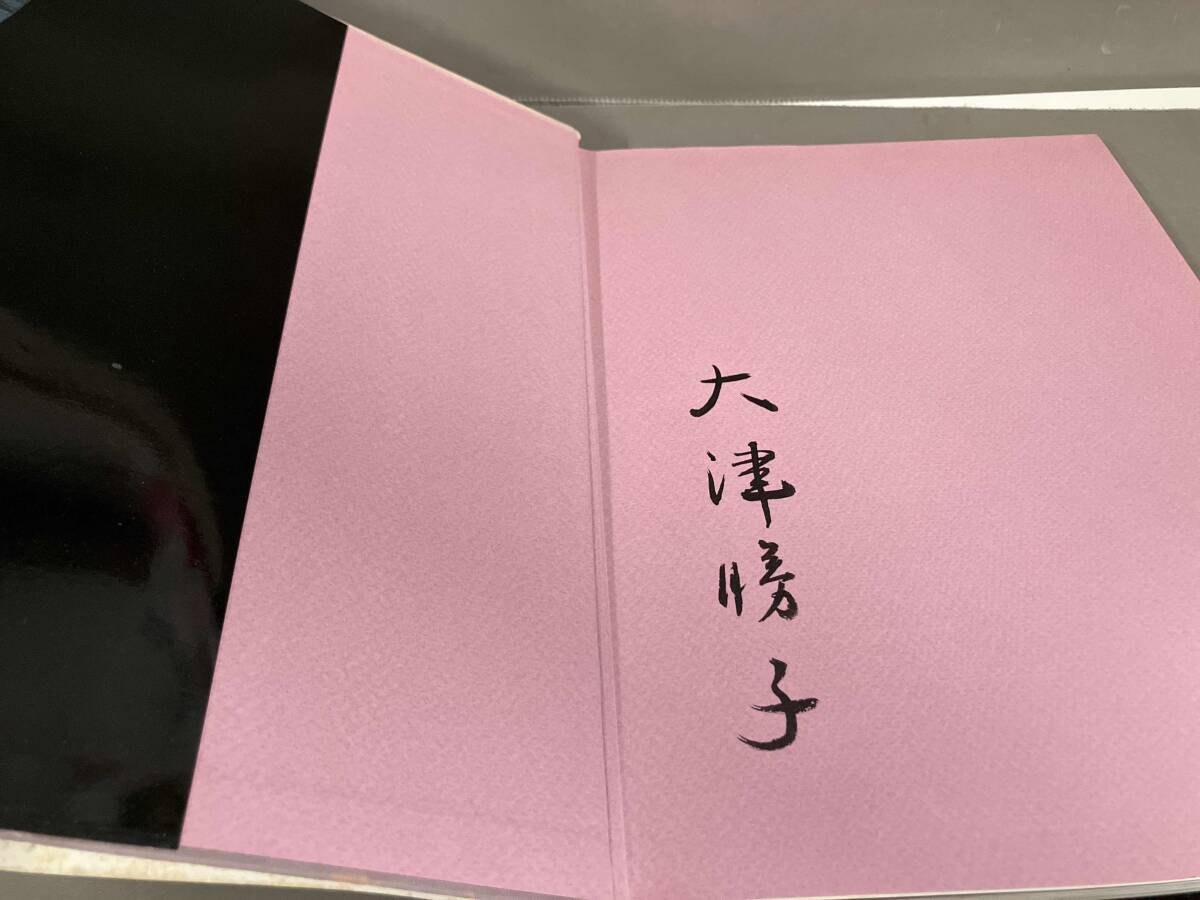 大津勝子